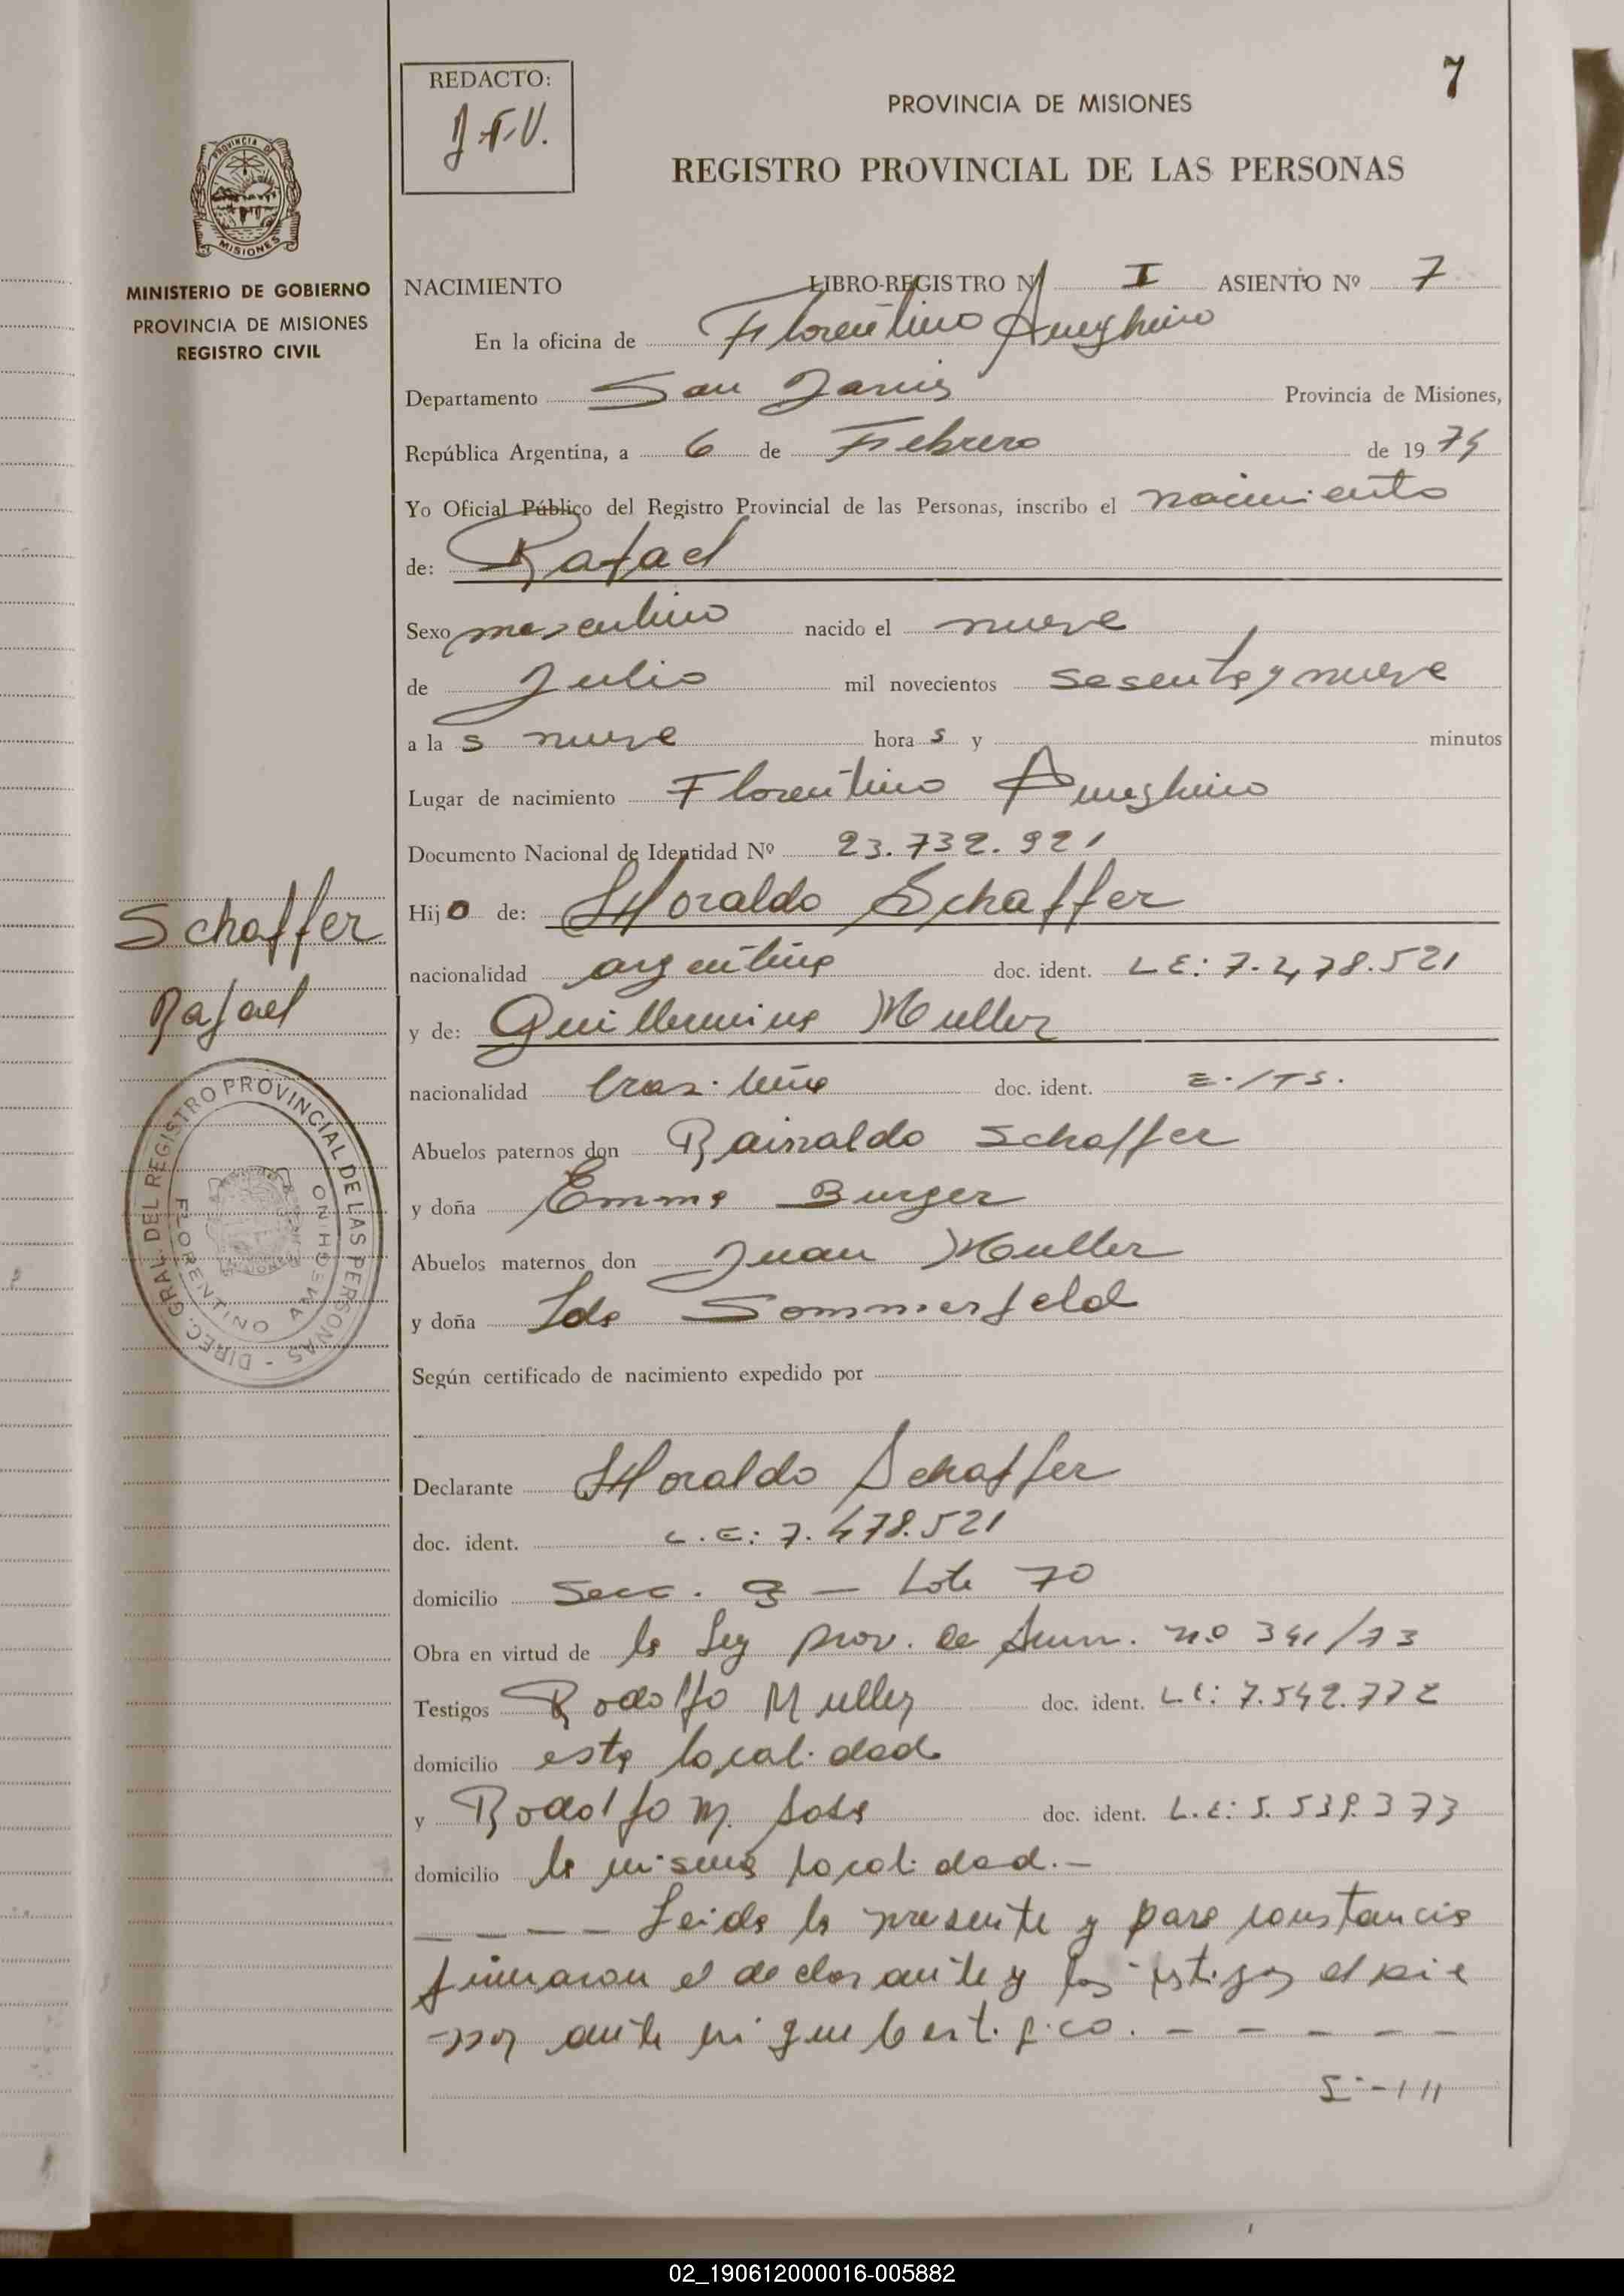 7
REDACTO:
J.F.V.
PROVINCIA DE MISIONES
REGISTRO PROVINCIAL DE LAS PERSONAS
PROVINCIA DE MISIONES
MINISTERIO DE GOBIERNO
PROVINCIA DE MISIONES
REGISTRO CIVIL
NACIMIENTO LIBRO-REGISTRO Nº I ASIENTO Nº 7
En la oficina de Florentino Ameghino
Departamento San Javier Provincia de Misiones,
República Argentina, a 6 de Febrero de 1974
Yo Oficial Público del Registro Provincial de las Personas, inscribo el nacimiento
de: Rafael
Sexo masculino nacido el nueve
de Julio mil novecientos sesenta y nueve
a la s nueve hora s y minutos
Lugar de nacimiento Florentino Ameghino
Documento Nacional de Identidad Nº 23.732.921
Hijo de: Horaldo Schaffer
nacionalidad argentina doc. ident. L E: 7.478.521
y de: Guillermina Muller
nacionalidad brasileña doc. ident.
Abuelos paternos don Rainaldo Schaffer
y doña Emma Burger
Abuelos maternos don Juan Muller
y doña Ida Sommerfeld
Según certificado de nacimiento expedido por
Declarante Horaldo Schaffer
doc. ident. L.E: 7.478.521
domicilio Secc. 3 - Lote 70
Obra en virtud de la Ley prov. de Amn. nº 341/73
Testigos Rodolfo Muller doc. ident. L E: 7.542.772
domicilio esta localidad
y Rodolfo M. Sosa doc. ident. L.E: 5.539.373
domicilio la misma localidad.-
---- Leida la presente y para constancia
firmaron el declarante y los testigos al pie
por ante mi que certifico. - - - - -
Schaffer
Rafael
DIREC. GRAL. DEL REGISTRO PROVINCIAL DE LAS PERSONAS -
FLORENTINO AMEGHINO
02_190612000016-005882